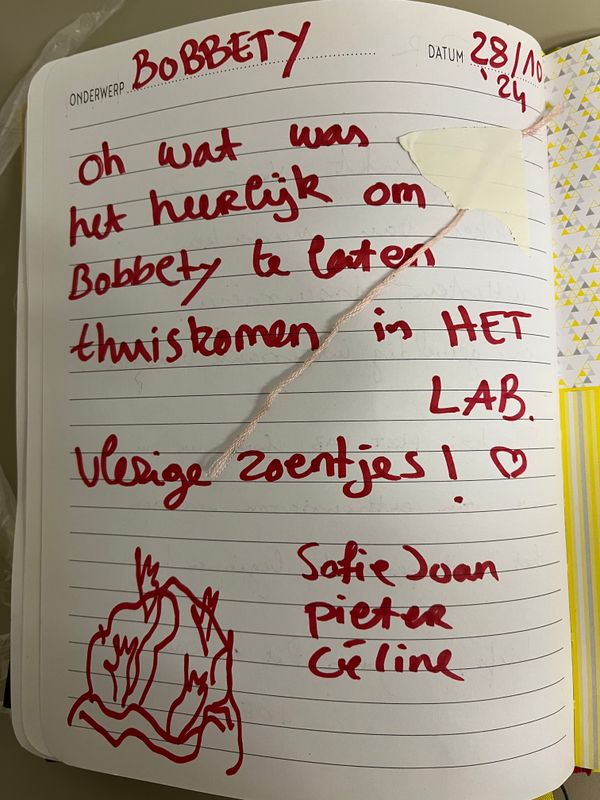 ONDERWERP BOBBETY
DATUM 28/10
'24
Oh wat was
het heerlijk om
Bobbety te laten
thuiskomen in HET
LAB.
Vlezige zoentjes! ♡
Sofie Joan
Pieter
Céline